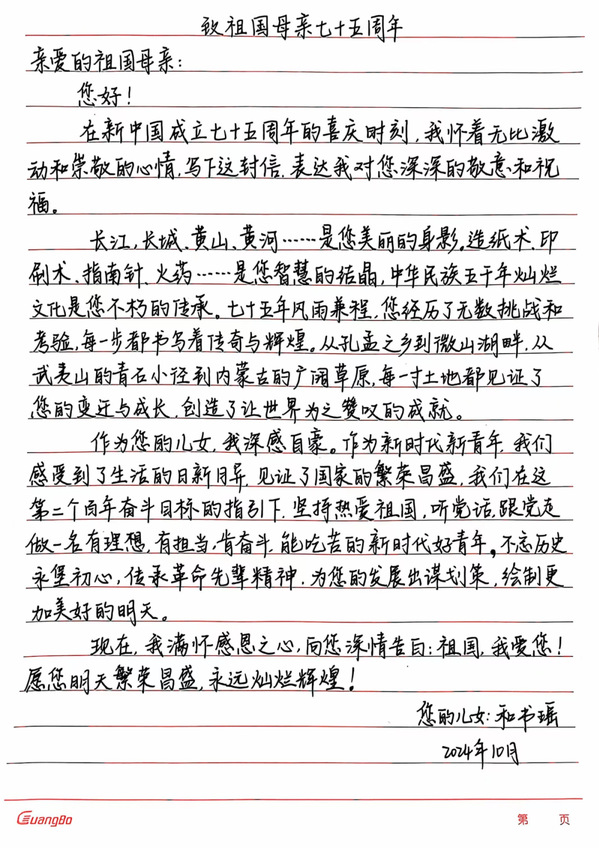 致祖国母亲七十五周年
亲爱的祖国母亲:
您好!
在新中国成立七十五周年的喜庆时刻,我怀着无比激
动和崇敬的心情,写下这封信,表达我对您深深的敬意和祝
福。
长江,长城、黄山、黄河……是您美丽的身影。造纸术、印
刷术、指南针、火药……是您智慧的结晶,中华民族五千年灿烂
文化是您不朽的传承。七十五年风雨兼程,您经历了无数挑战和
考验,每一步都书写着传奇与辉煌。从孔孟之乡到微山湖畔,从
武夷山的青石小径到内蒙古的广阔草原,每一寸土地都见证了
您的变迁与成长,创造了让世界为之赞叹的成就。
作为您的儿女,我深感自豪。作为新时代新青年,我们
感受到了生活的日新月异,见证了国家的繁荣昌盛,我们在这
第二个百年奋斗目标的指引下,坚持热爱祖国,听党话,跟党走
做一名有理想,有担当,肯奋斗,能吃苦的新时代好青年。不忘历史
永堡初心,传承革命先辈精神,为您的发展出谋划策,绘制更
加美好的明天。
现在,我满怀感恩之心,向您深情告白:祖国,我爱您!
愿您明天繁荣昌盛,永远灿烂辉煌!
您的儿女:和书瑶
2024年10月
GuangBo
第 页